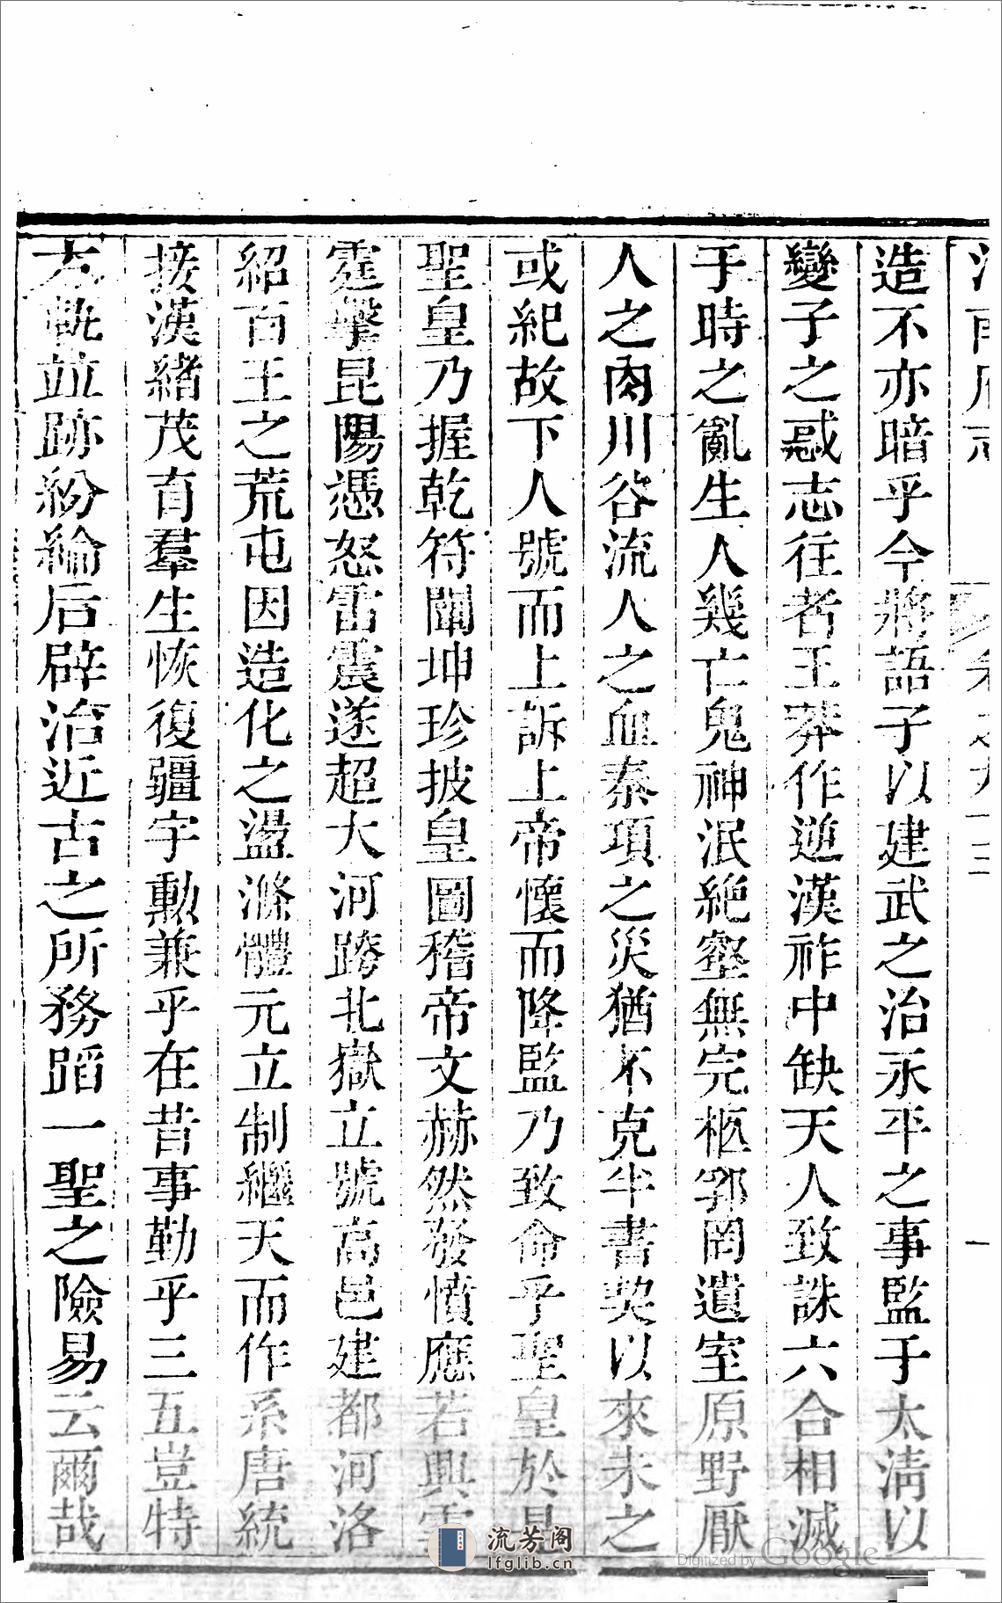 造不亦暗乎今將語子以建武之治永平之事監于太淸以
變子之惑志往者王莽作逆漢祚中缺天人致誅六合相滅
于時之亂生人幾亡鬼神泯絶壑無完柩郛罔遺室原野厭
人之肉川谷流人之血秦項之災猶不克半書契以來未之
或紀故下人號而上訴上帝懷而降監乃致命乎聖皇於是
聖皇乃握乾符闡坤珍披皇圖稽帝文赫然發憤應若興雲
霆擊昆陽憑怒雷震遂超大河跨北嶽立號高邑建都河洛
紹百王之荒屯因造化之盪滌體元立制繼天而作系唐統
接漢緒茂育羣生恢復疆宇勳兼乎在昔事勤乎三五豈特
方軌竝跡紛綸后辟治近古之所務蹈一聖之險易云爾哉
流芳阁
lfglib.cn
Digitized by Google